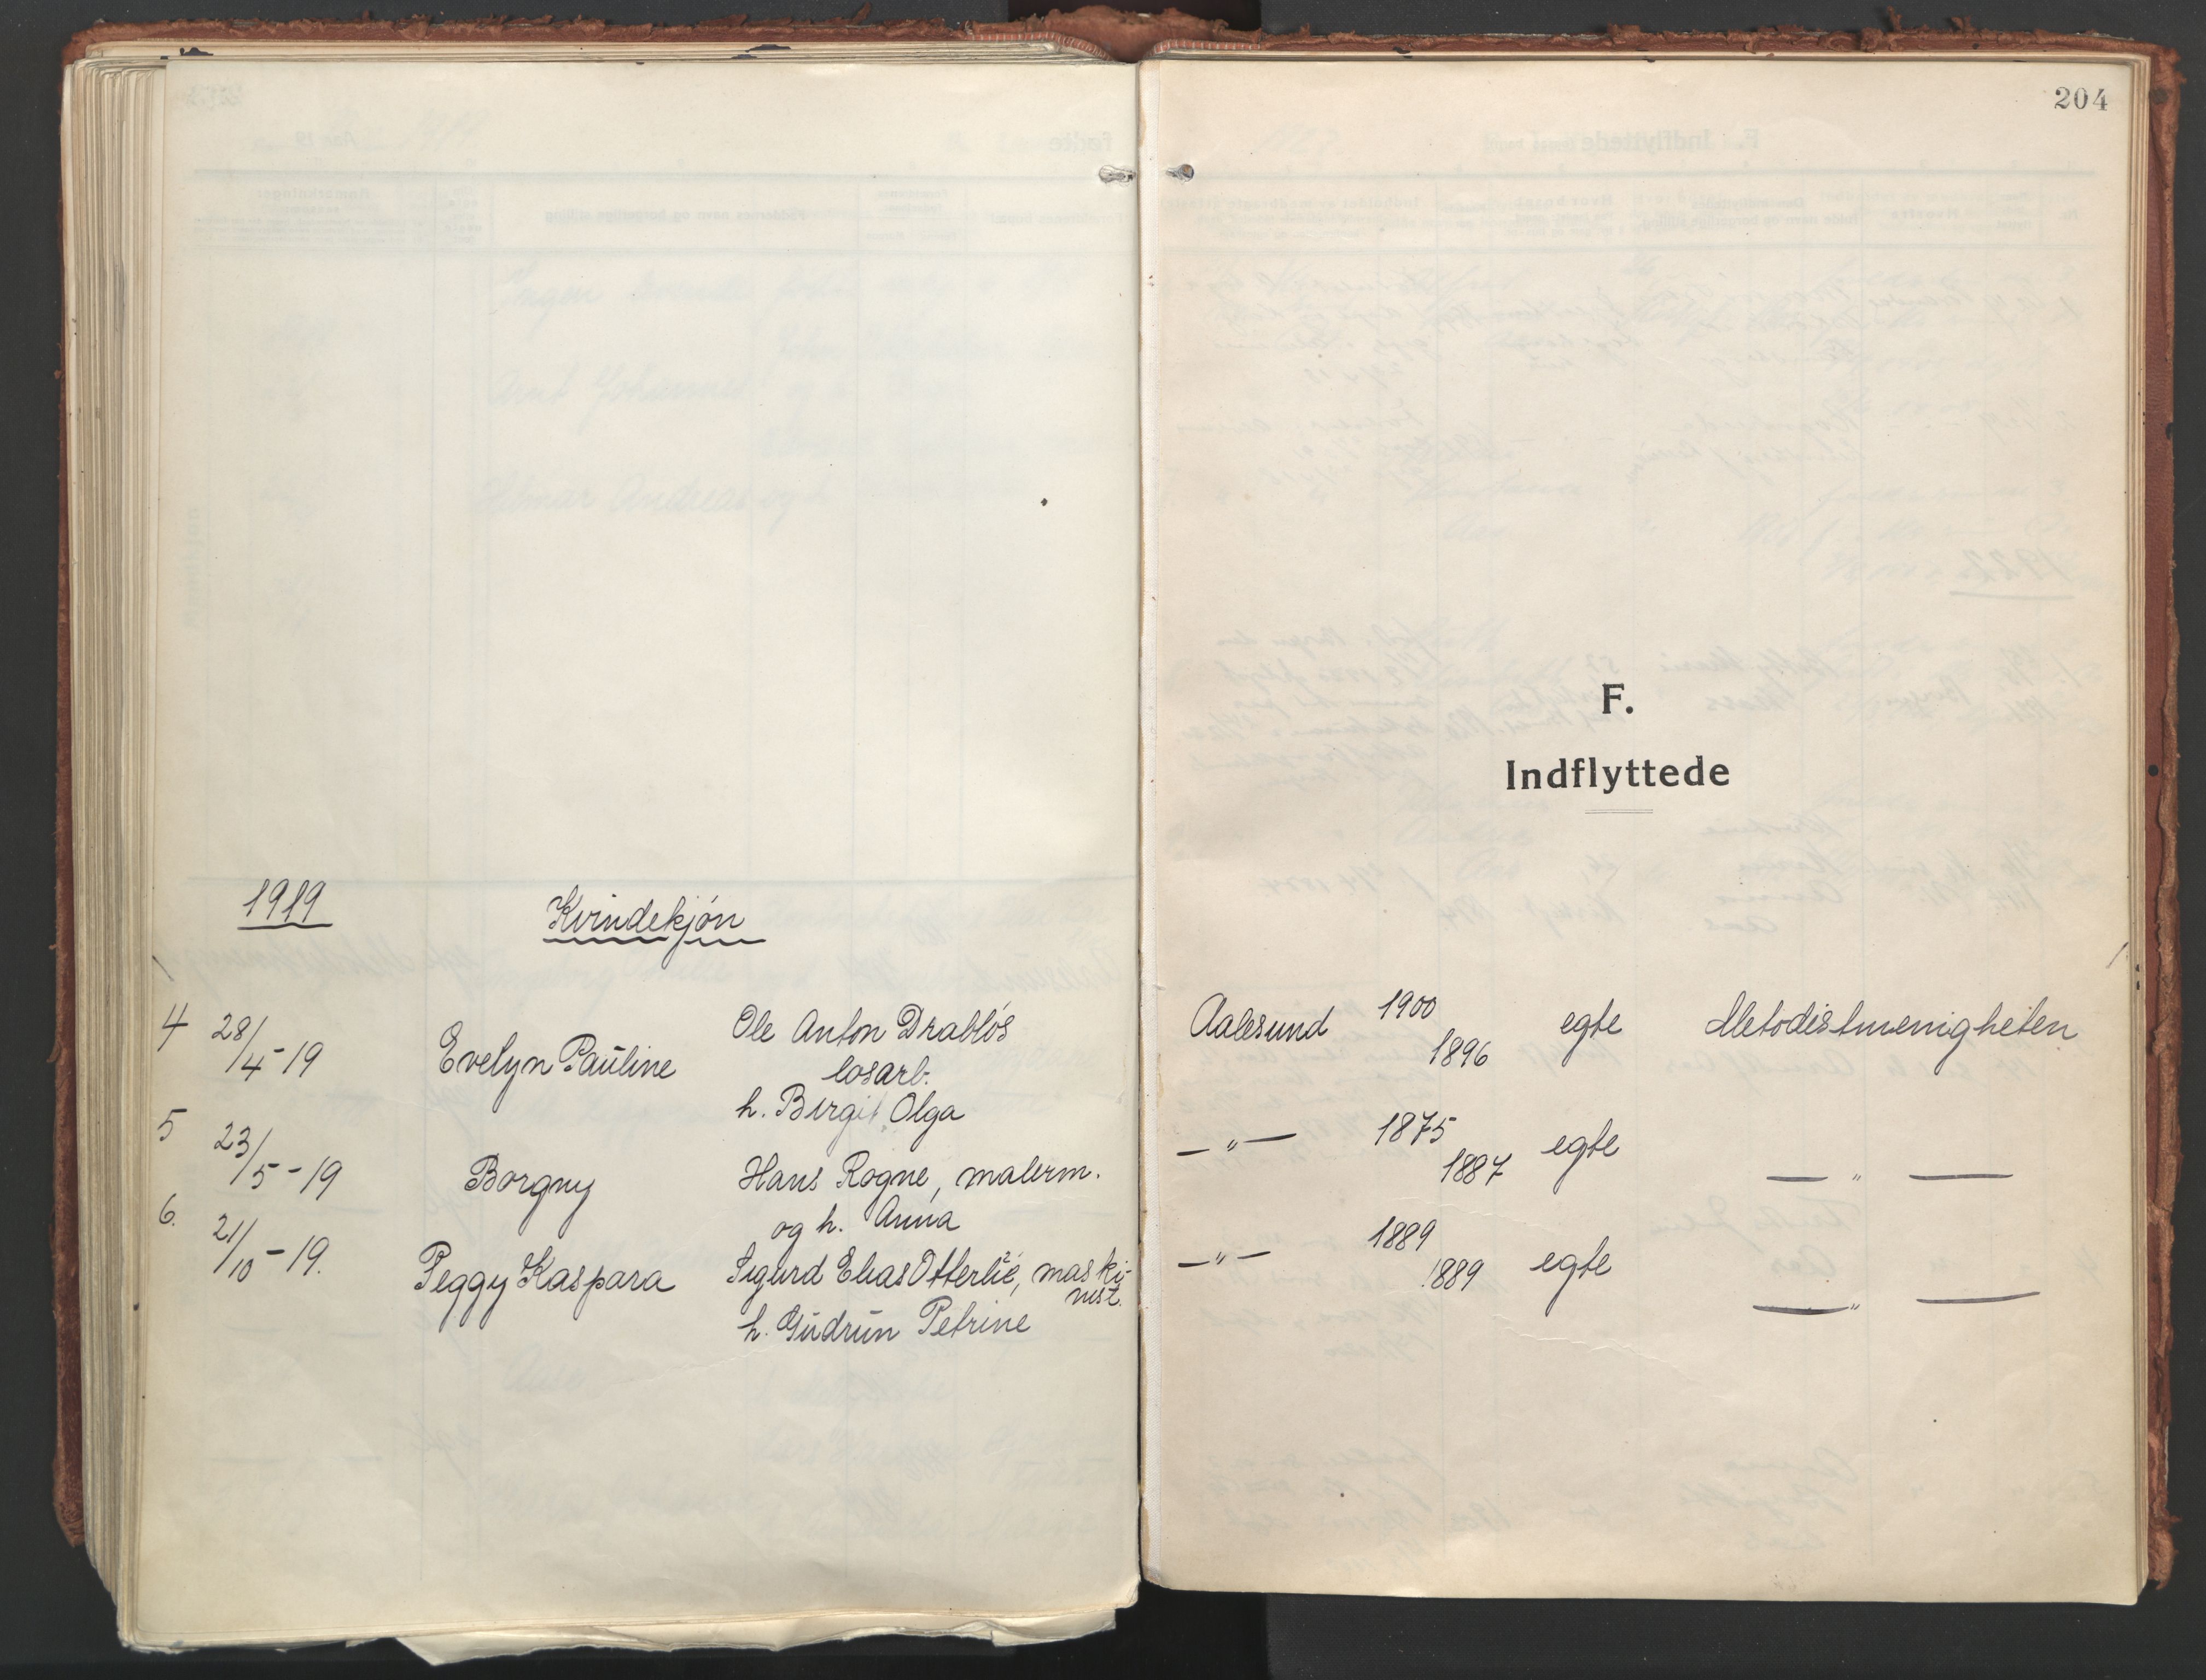 204
F.
Indflyttede
1919 Kvindekjøn
4 28/4-19 Evelyn Pauline Ole Anton Drabløs Aalesund 1900 egte Metodistmenigheten
losarb. 1896
h. Birgit Olga
5 23/5-19 Borgny Hans Rogne, malerm. —"— 1875 egte — " —
og h. Anna 1887
6. 21/10-19. Peggy Kaspara Sigurd Elias Otterlie, maski- —"— 1889 egte — " —
nist. 1889
h. Gudrun Petrine